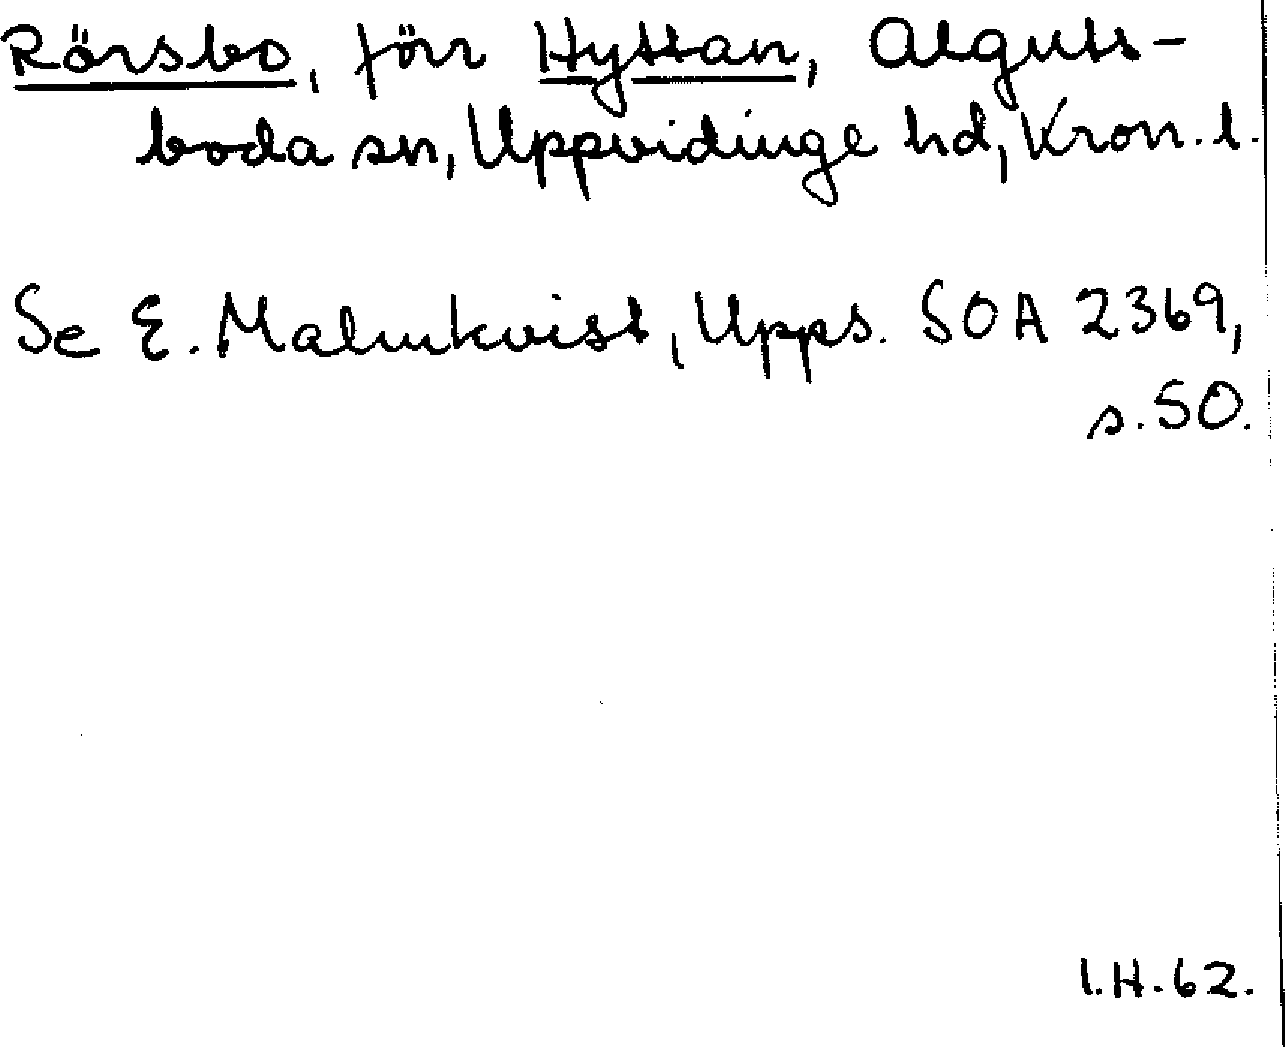 Rörsbo, förr Hyttan, Alguts-
boda sn, Uppvidinge hd, Kron. l.
Se E. Malmkvist, Upps. SOA 2369,
s. 50.
I.H. 62.